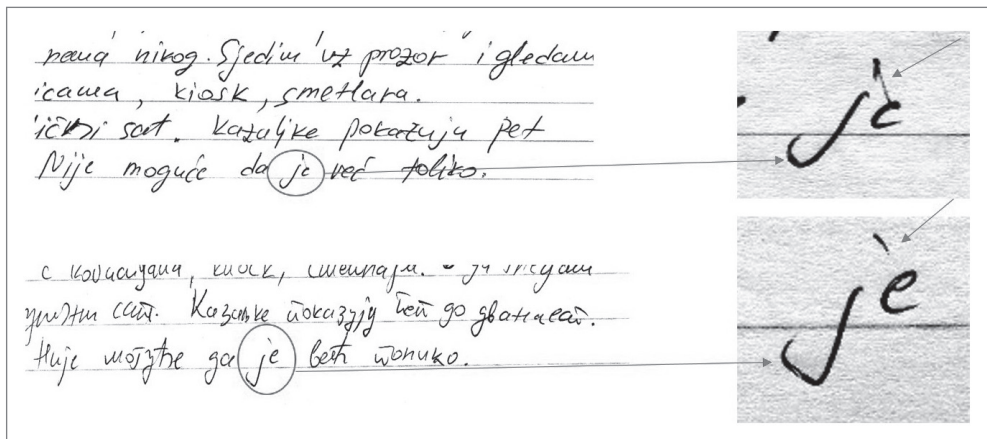 nema nikog. Sjedim uz prozor i gledam
icama, kiosk, smetlara.
ički sat. Kazaljke pokazuju pet
Nije moguće da je već toliko.
je
с киоск,
сат. Казаљке показују пет до дванаест.
Није могуће да је већ толико.
је